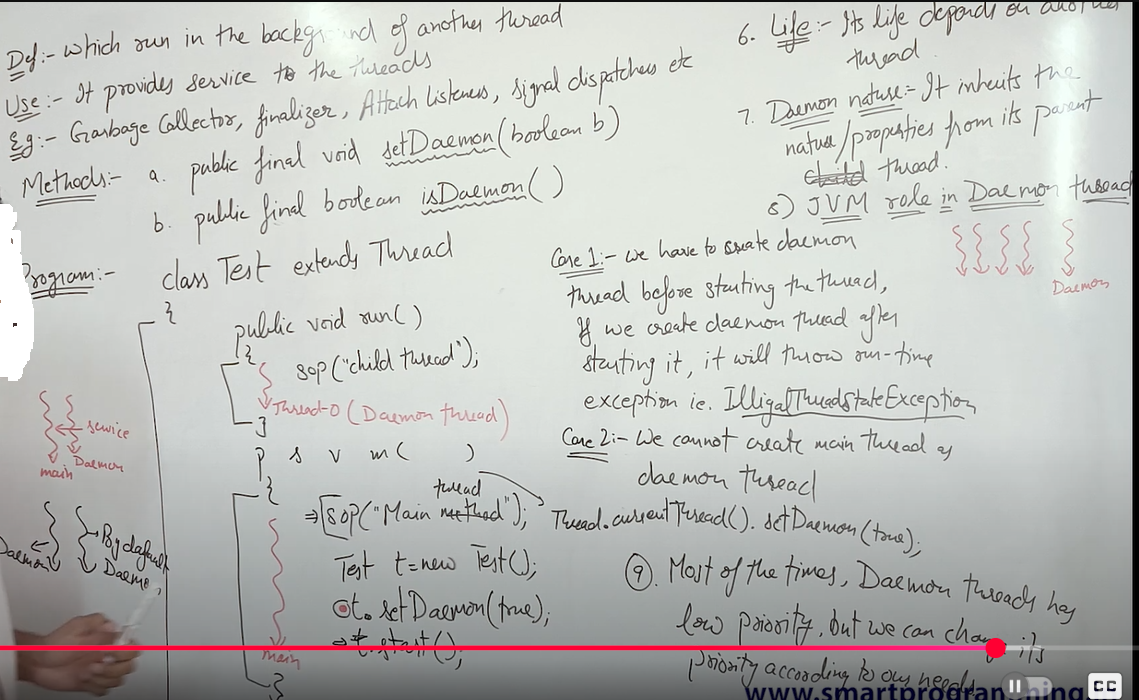 Def:- which run in the background of another thread
Use:- It provides service to the threads
Eg:- Garbage Collector, finalizer, Attach Listeners, signal dispatchers etc
Methods:- a. public final void setDaemon(boolean b)
b. public final boolean isDaemon()
Program:- class Test extends Thread
{
public void run()
{
sop("child thread");
Thread-0 (Daemon thread)
}
p s v m( )
{
thread
⇒ sop("Main method");
Test t=new Test();
t.setDaemon(true);
⇒ t.start();
main
}
service
main Daemon
Daemon
By default
Daemon
6. Life:- Its life depends on another
thread
7. Daemon nature:- It inherits the
nature/properties from its parent
thread.
8) JVM role in Daemon thread
Daemon
Case 1:- we have to create daemon
thread before starting the thread,
If we create daemon thread after
starting it, it will throw run-time
exception ie. IlligalThreadStateException
Case 2:- We cannot create main thread as
daemon thread
Thread.currentThread().setDaemon(true);
9. Most of the times, Daemon threads has
low priority, but we can change its
priority according to our needs
www.smartprogramming.
CC